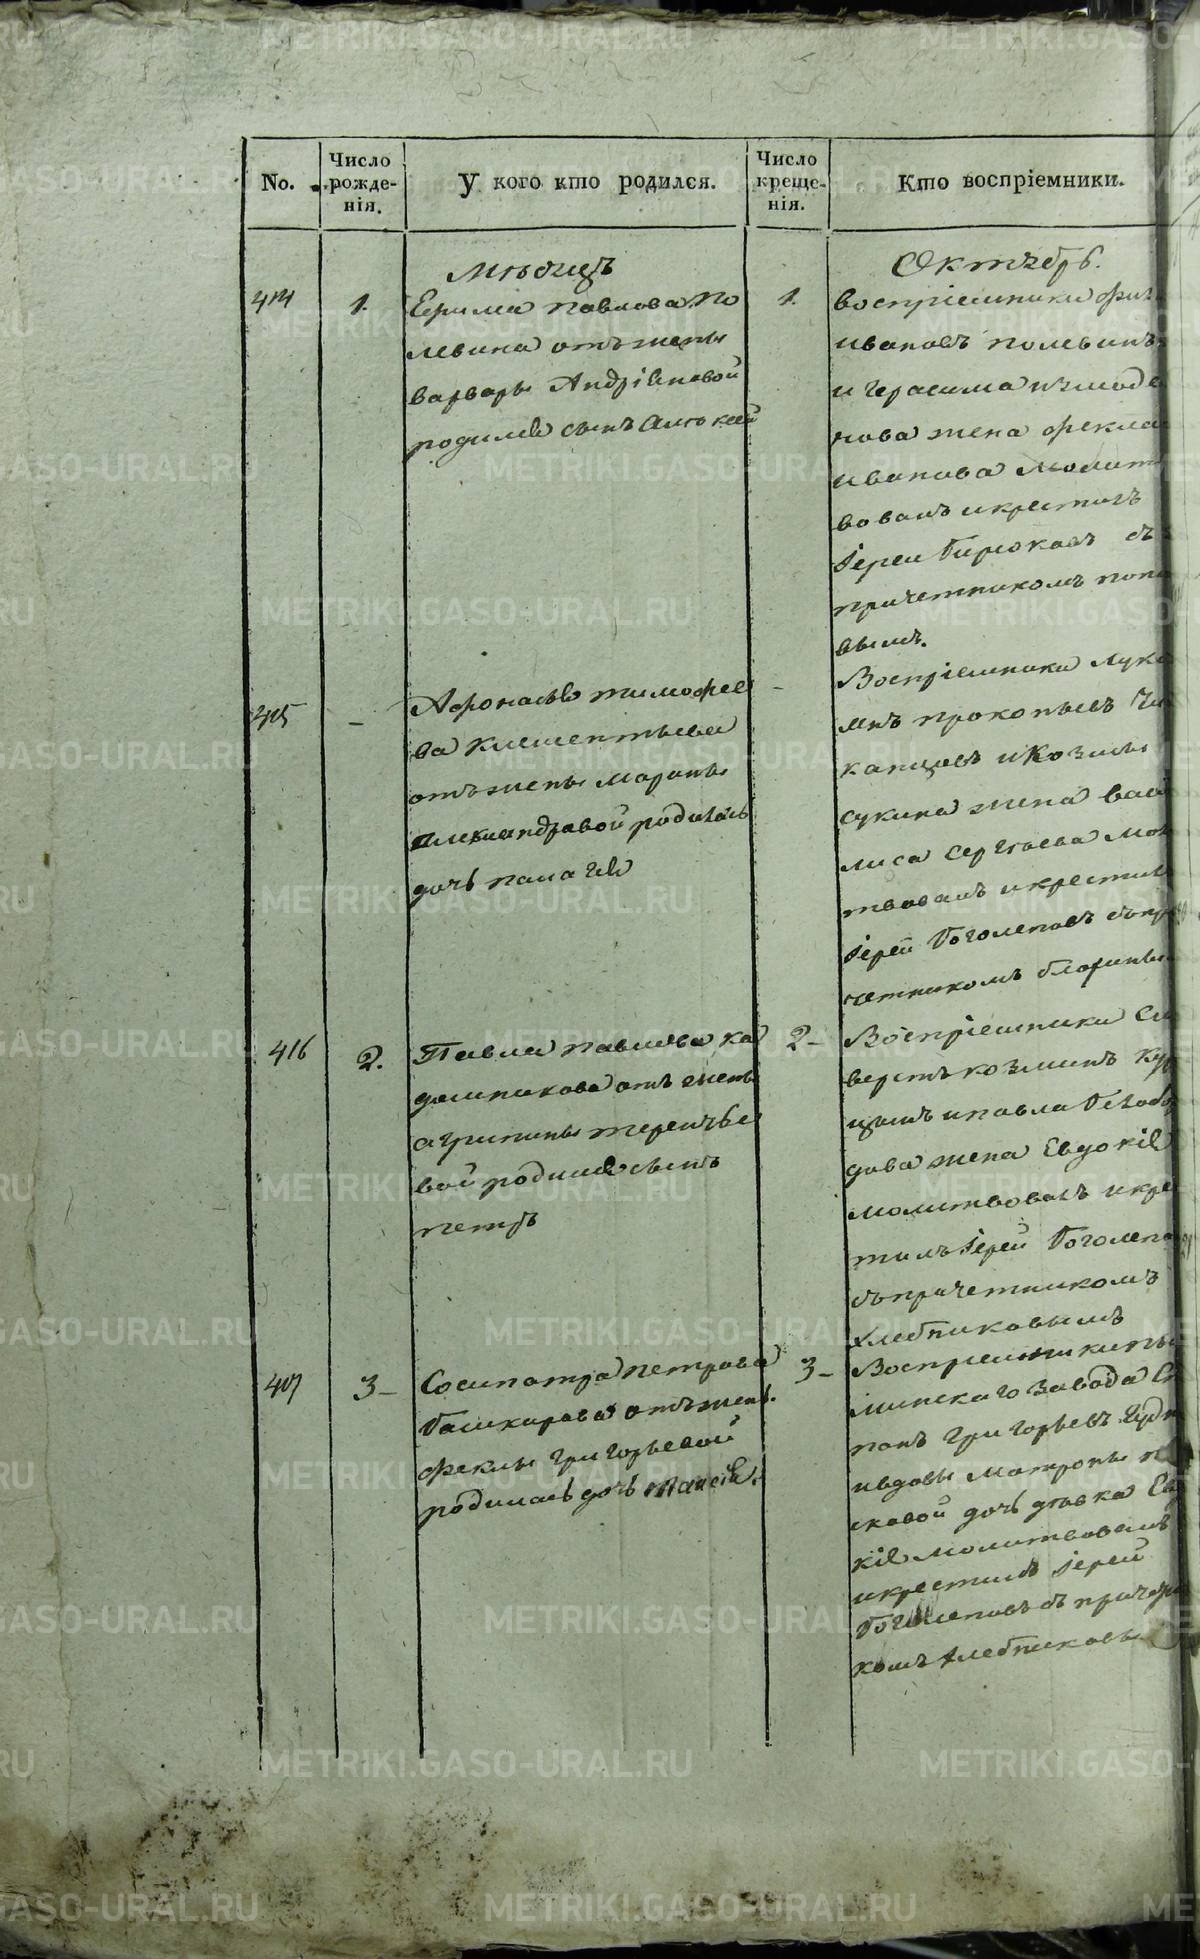 No.
Число рожде-нія.
У кого кто родился.
Число креще-нія.
Кто воспріемники.
Мѣсяцъ
Октябрь.
414
1.
Ефима Павлова По
левина отъ жены
варвары Андріяновой
родился сынъ Алексей
1.
воспріемники
ивановъ полевинъ
и герасима
нова жена фекла
иванова молит
вовалъ и крестилъ
Іереи Бирюковъ съ
причетникомъ попо
вымъ.
415
-
Афонасья тимофее
ва клементьева
отъ жены марины
александравой родилась
дочь палагея
-
Воспріемники лука
прокопьевъ
и козмы
сукина жена васи
лиса сергѣева мол
твовалъ и крестилъ
Іерей Боголеповъ съ пр
четникомъ
416
2.
Павла павлова ка
дошникова отъ жены
агрипины терентье
вой родился сынъ
петръ
2-
Воспріемники
козминъ
и павла
дова жена Евдокія
молитвовалъ и кре
тилъ Іерей Боголепо
съ причетникомъ
хлебниковымъ
407
3-
Сосипатра петрова
башкирова отъ жены
феклы григорьевой
родилась дочь таисія.
3-
Воспріемники
минскаго завода
панъ григорьевъ
и вдовы матроны
сковой дочь девка Ев
кія молитвовалъ
и крестилъ Іерей
Боголеповъ съ причетни
комъ хлебниковы
METRIKI.GASO-URAL.RU